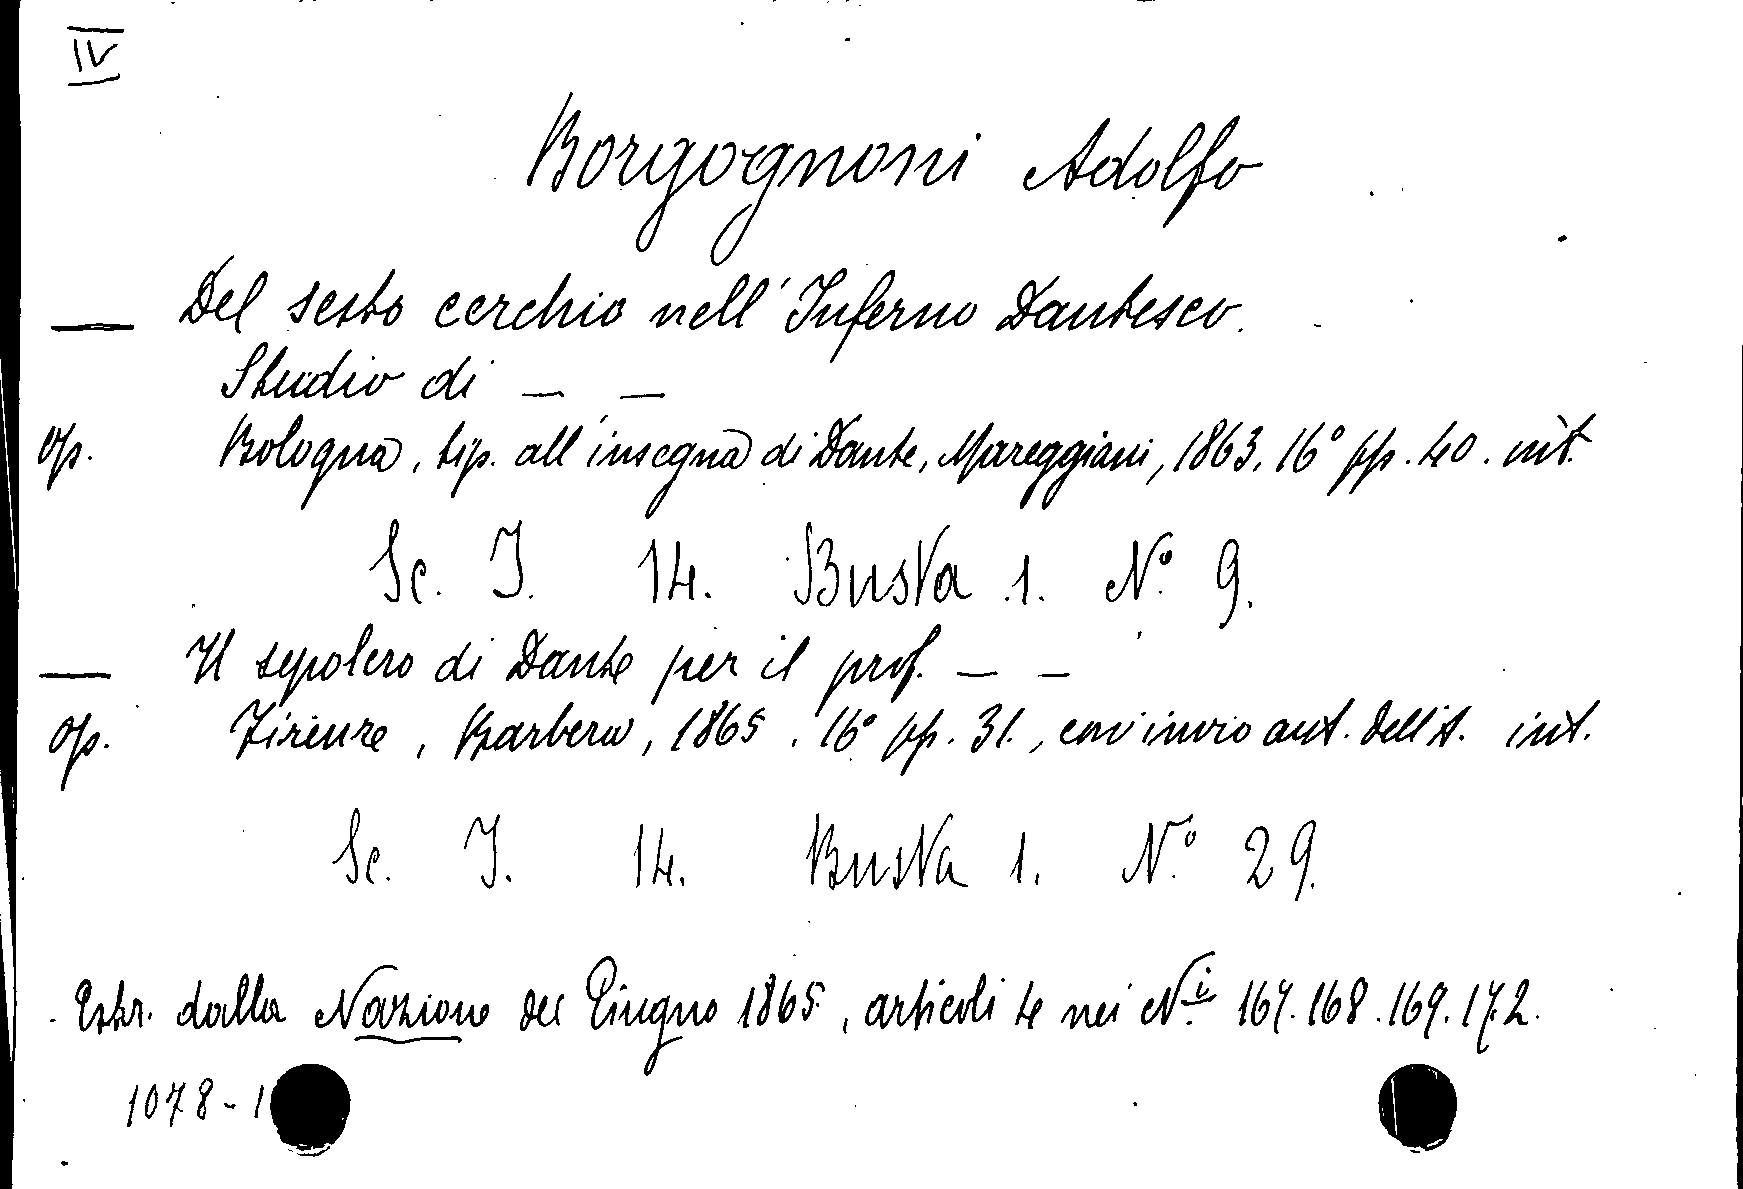 IV
Borgognoni Adolfo
— Del sesto cerchio nell'Inferno Dantesco.
Studio di — —
op. Bologna, tip. all'insegna di Dante, Mareggiani, 1863. 16° pp. 40. int.
Sc. I. 14. Busta 1. N° 9.
— Il sepolcro di Dante per il prof. — —
op. Firenze, Barbera, 1865. 16° pp. 31., con invio aut. dell'A. int.
Sc. I. 14. Busta 1. N° 29.
Estr. dalla Nazione del Giugno 1865, articoli 4 nei N.i 167. 168. 169. 172.
1078-1